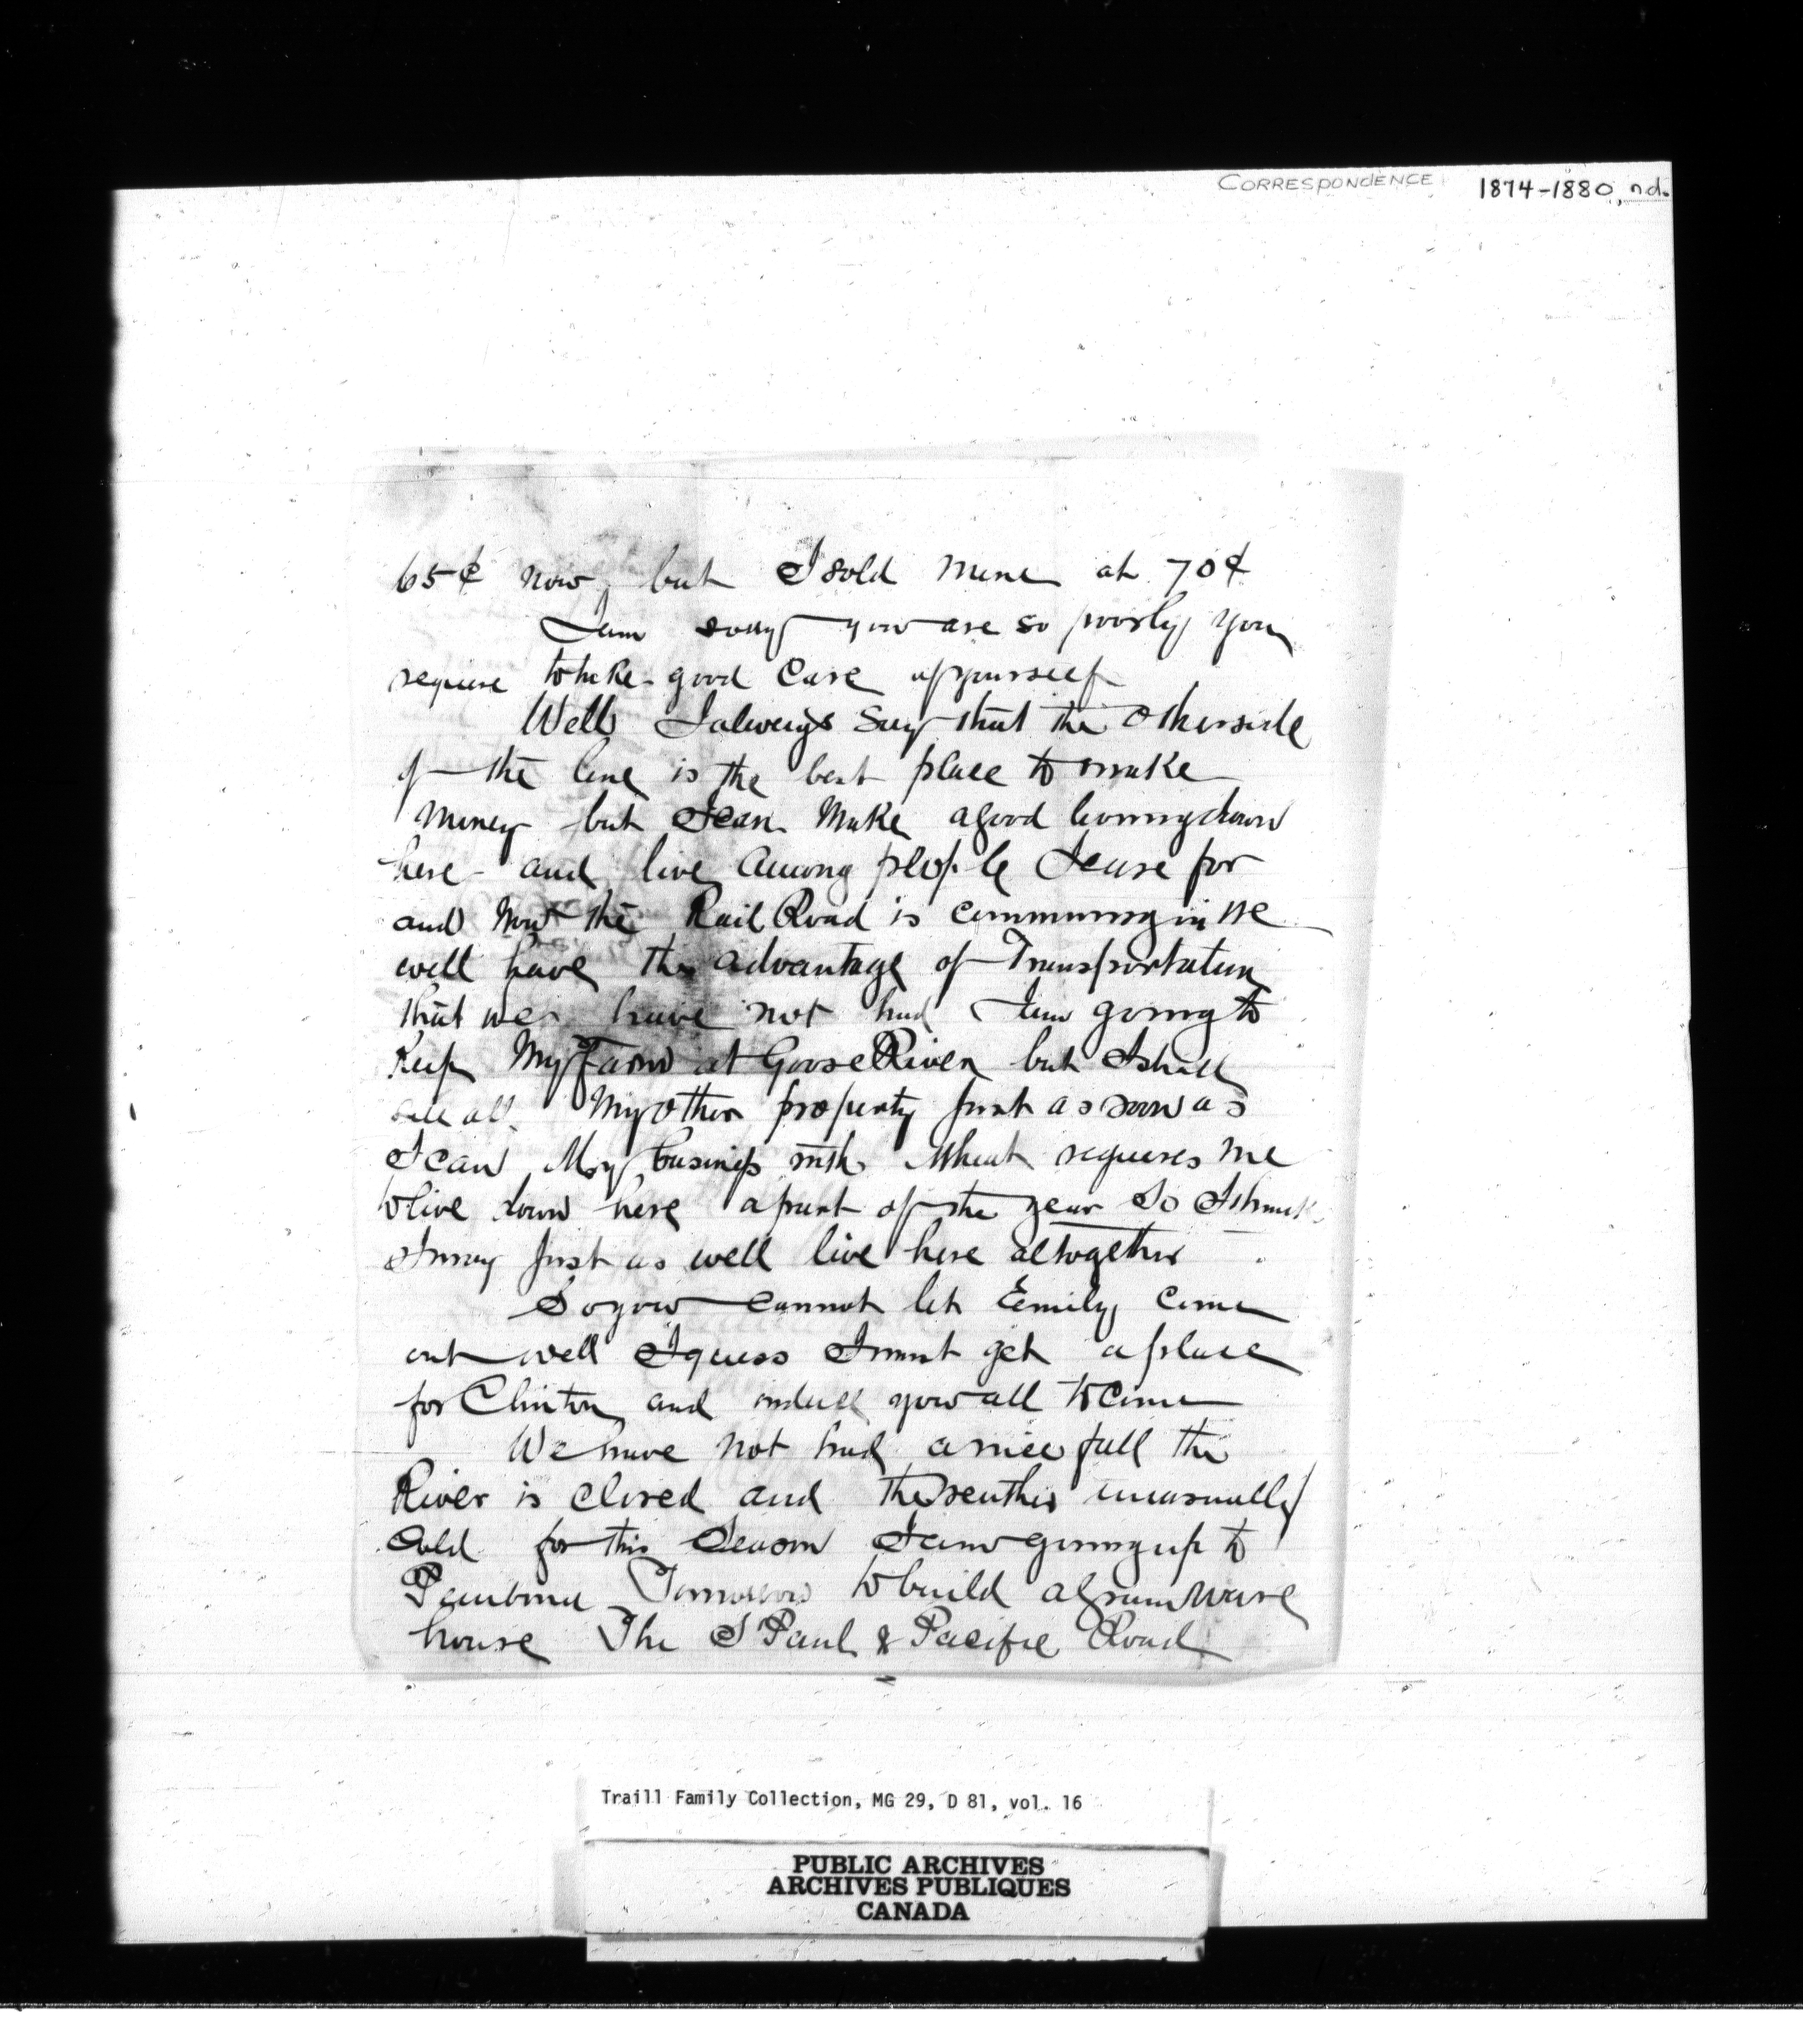 CORRESPONDENCE 1874-1880, n.d.
65¢ now, but I sold mine at 70¢
I am sorry you are so poorly you
require to take good care of yourself
Well I always say that the otherside
of the line is the best place to make
money but I can make a good living down
here and live among people I care for
and now the Rail Road is comming in we
will have the advantage of Transportation
that we have not had I am going to
Keep My Farm at Goose River but I shall
sell all My other property just as soon as
I can My business with Wheat requires me
to live down here a part of the year So I think
I may just as well live here altogether
So you cannot let Emily come
out well I guess I must get a place
for Clinton and induce you all to come
We have not had a nice fall the
River is closed and the weather unusually
Cold for this Season I am going up to
Pembina Tomorrow to build a grain ware
house The S Paul & Pacific Road
Traill Family Collection, MG 29, D 81, vol. 16
PUBLIC ARCHIVES
ARCHIVES PUBLIQUES
CANADA